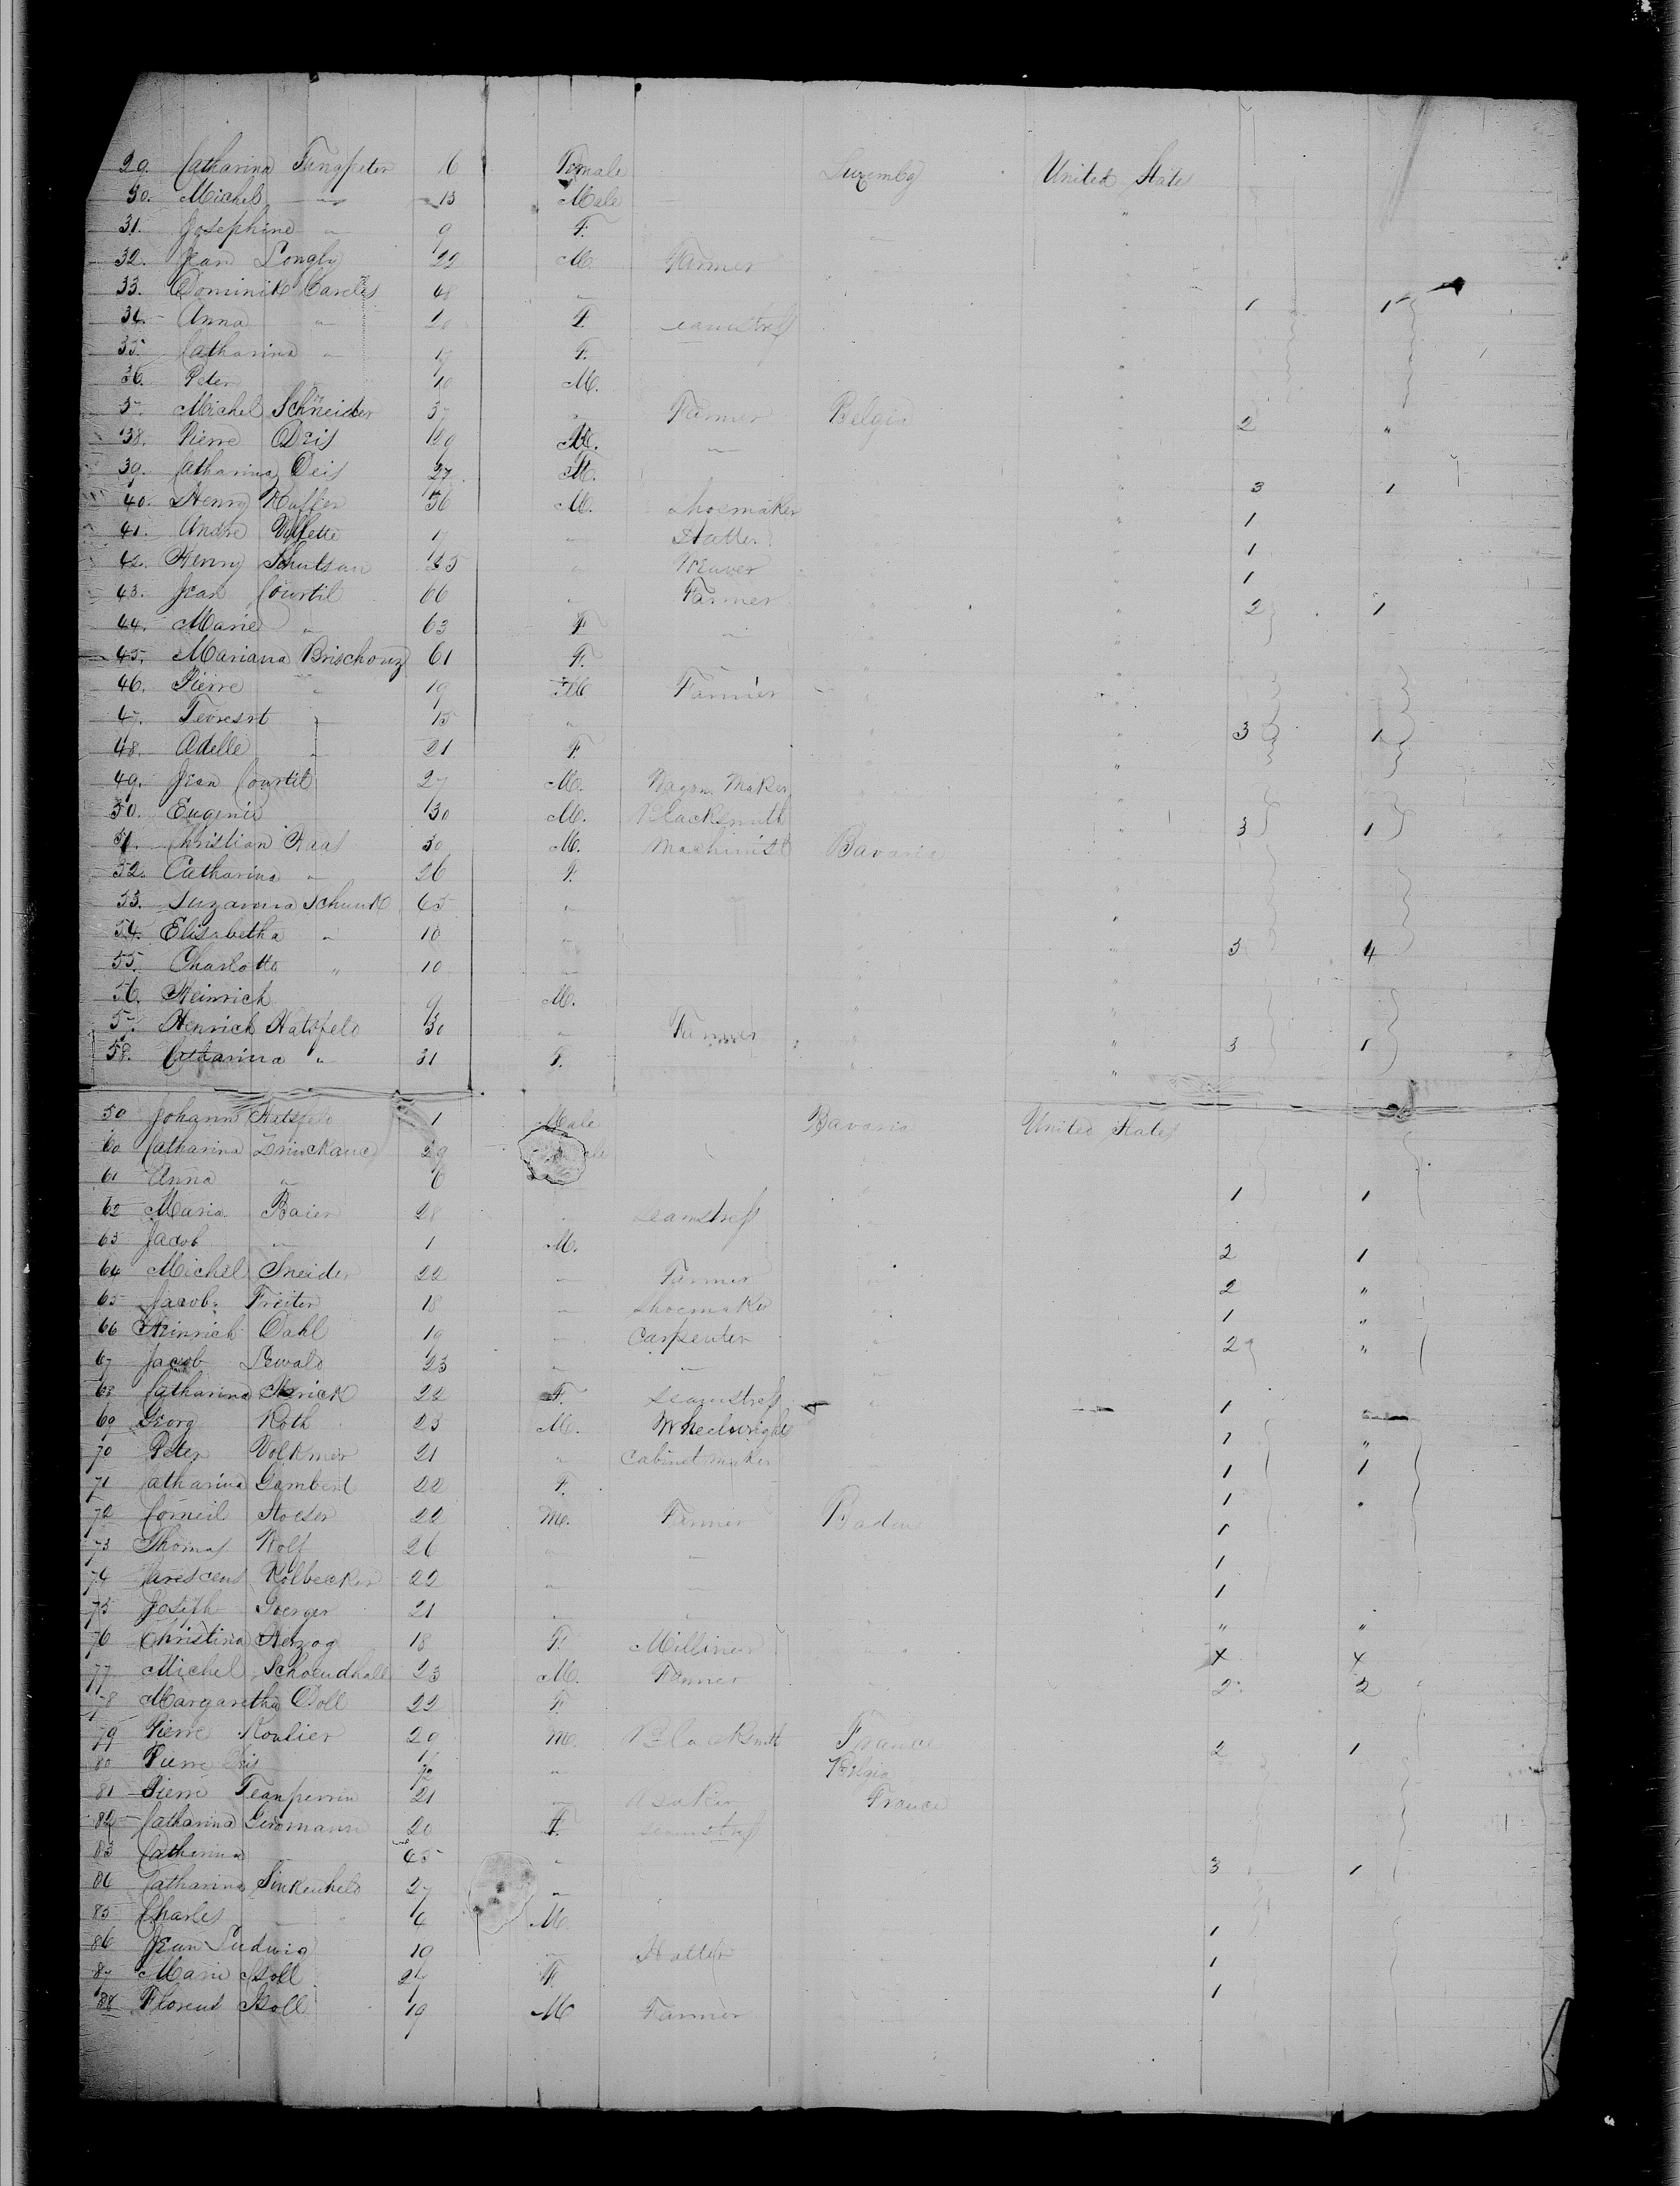 29. Catharina Jungpeter 16 Female Luxembg United States
30. Michel " 13 Male "
31. Josephine " 9 F.
32. Jean Longly 22 M. Farmer
33. Dominik Carelis 48 " 1 1
34. Anna " 20 F. Seamstress
35. Catharina " 17 F.
36. Peter 10 M. "
37. Michel Schneider 37 " Farmer Belgia 2 "
38. Pierre Deis 19 M. "
39. Catharina Deis 27 3 1
40. Henry Kuffer 36 M. Shoemaker " 1
41. Andre 17 " Hatter " 1
42. Henry Schutsan 25 " Weaver 1
43. Jean Courtil 66 " Farmer 2 1
44. Marie " 63 F. "
45. Mariana Brischouz 61 F.
46. Pierre " 19 M Farmer
47. " 15 " 3 1
48. Adelle " 21 F.
49. Jean Courtil 27 M. Wagon Maker
50. Eugenie 30 M. Blacksmith 3 1
51. Christian Haas 30 M. Machinist Bavaria
52. Catharina " 26 F.
53. Suzanna Schunk 65 "
54. Elisabetha " 10 " 3 4
55. Charlotte " 10 "
56. Heinrich 9 M.
57. Henrich Hatsfeld 30 " Farmer " 3 1
58. Catharina " 31 F. "
59 Johann Hatsfeld 1 Male Bavaria United States
60 Catharina 29
61 Anna " 6 1 1
62 Maria Baier 28 Seamstress
63 Jacob " 1 M. 2 1
64 Michel Sneider 22 " Farmer 2 "
65 Jacob Freiter 18 " Shoemaker 1 "
66 Heinrich Dahl 19 " Carpenter 2 "
67 Jacob Dewald 23 " "
68 Catharina 22 F. Seamstress 1
69 Georg Roth 23 M. Wheelwright 1 "
70 Peter Volkmer 21 " Cabinetmaker 1 1
71 Catharina Gambert 22 F. 1
72 Corneil Stoeser 22 M. Farmer Baden 1
73 Thomas Wolf 26 " " 1
74 Kolbecker 22 " " 1
75 Joseph Goerger 21 " " "
76 Christina Herzog 18 F. Milliner X X
77 Michel Schoendhall 23 M. Farmer 2 2
78 Margaretha Doll 22 F.
79 Pierre Roulier 29 M. Blacksmith France 2 1
80 Pierre Deis " Belgia
81 Pierre Jeanperrin 21 " France
82 Catharina Giromann 20 F. Seamstress
83 Catharina 65 " 3 1
84 Catharina Sinkenheld 27 "
85 Charles 6 M. 1
86 Jean Ludwig 19 " Hatter 1
87 Marie Stoll 27 F. 1
88 Florent Stoll 19 M Farmer